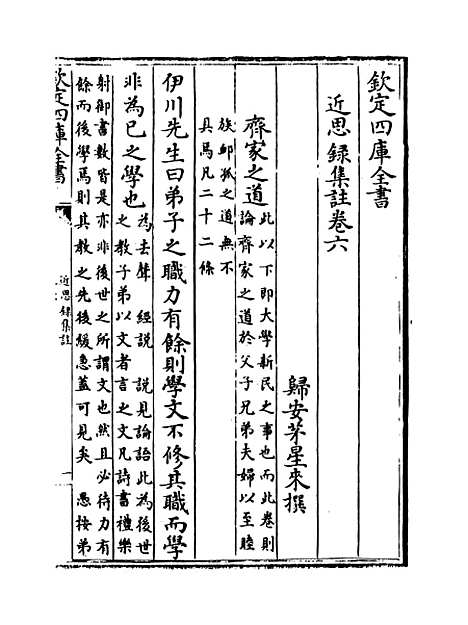 欽定四庫全書
近思録集註卷六
歸安茅星來撰
齊家之道
此以下即大學新民之事也而此卷則
論齊家之道於父子兄弟夫婦以至睦
族卹孤之道無不
具焉凡二十二條
伊川先生曰弟子之職力有餘則學文不修其職而學
非為已之學也
為去聲 經說 說見論語此為後世
之教子弟以文者言之文凡詩書禮樂
射御書數皆是亦非後世之所謂文也然且必待力有
餘而後學焉則其教之先後緩急蓋可見矣 愚按弟
欽定四庫全書
近思録集註
一